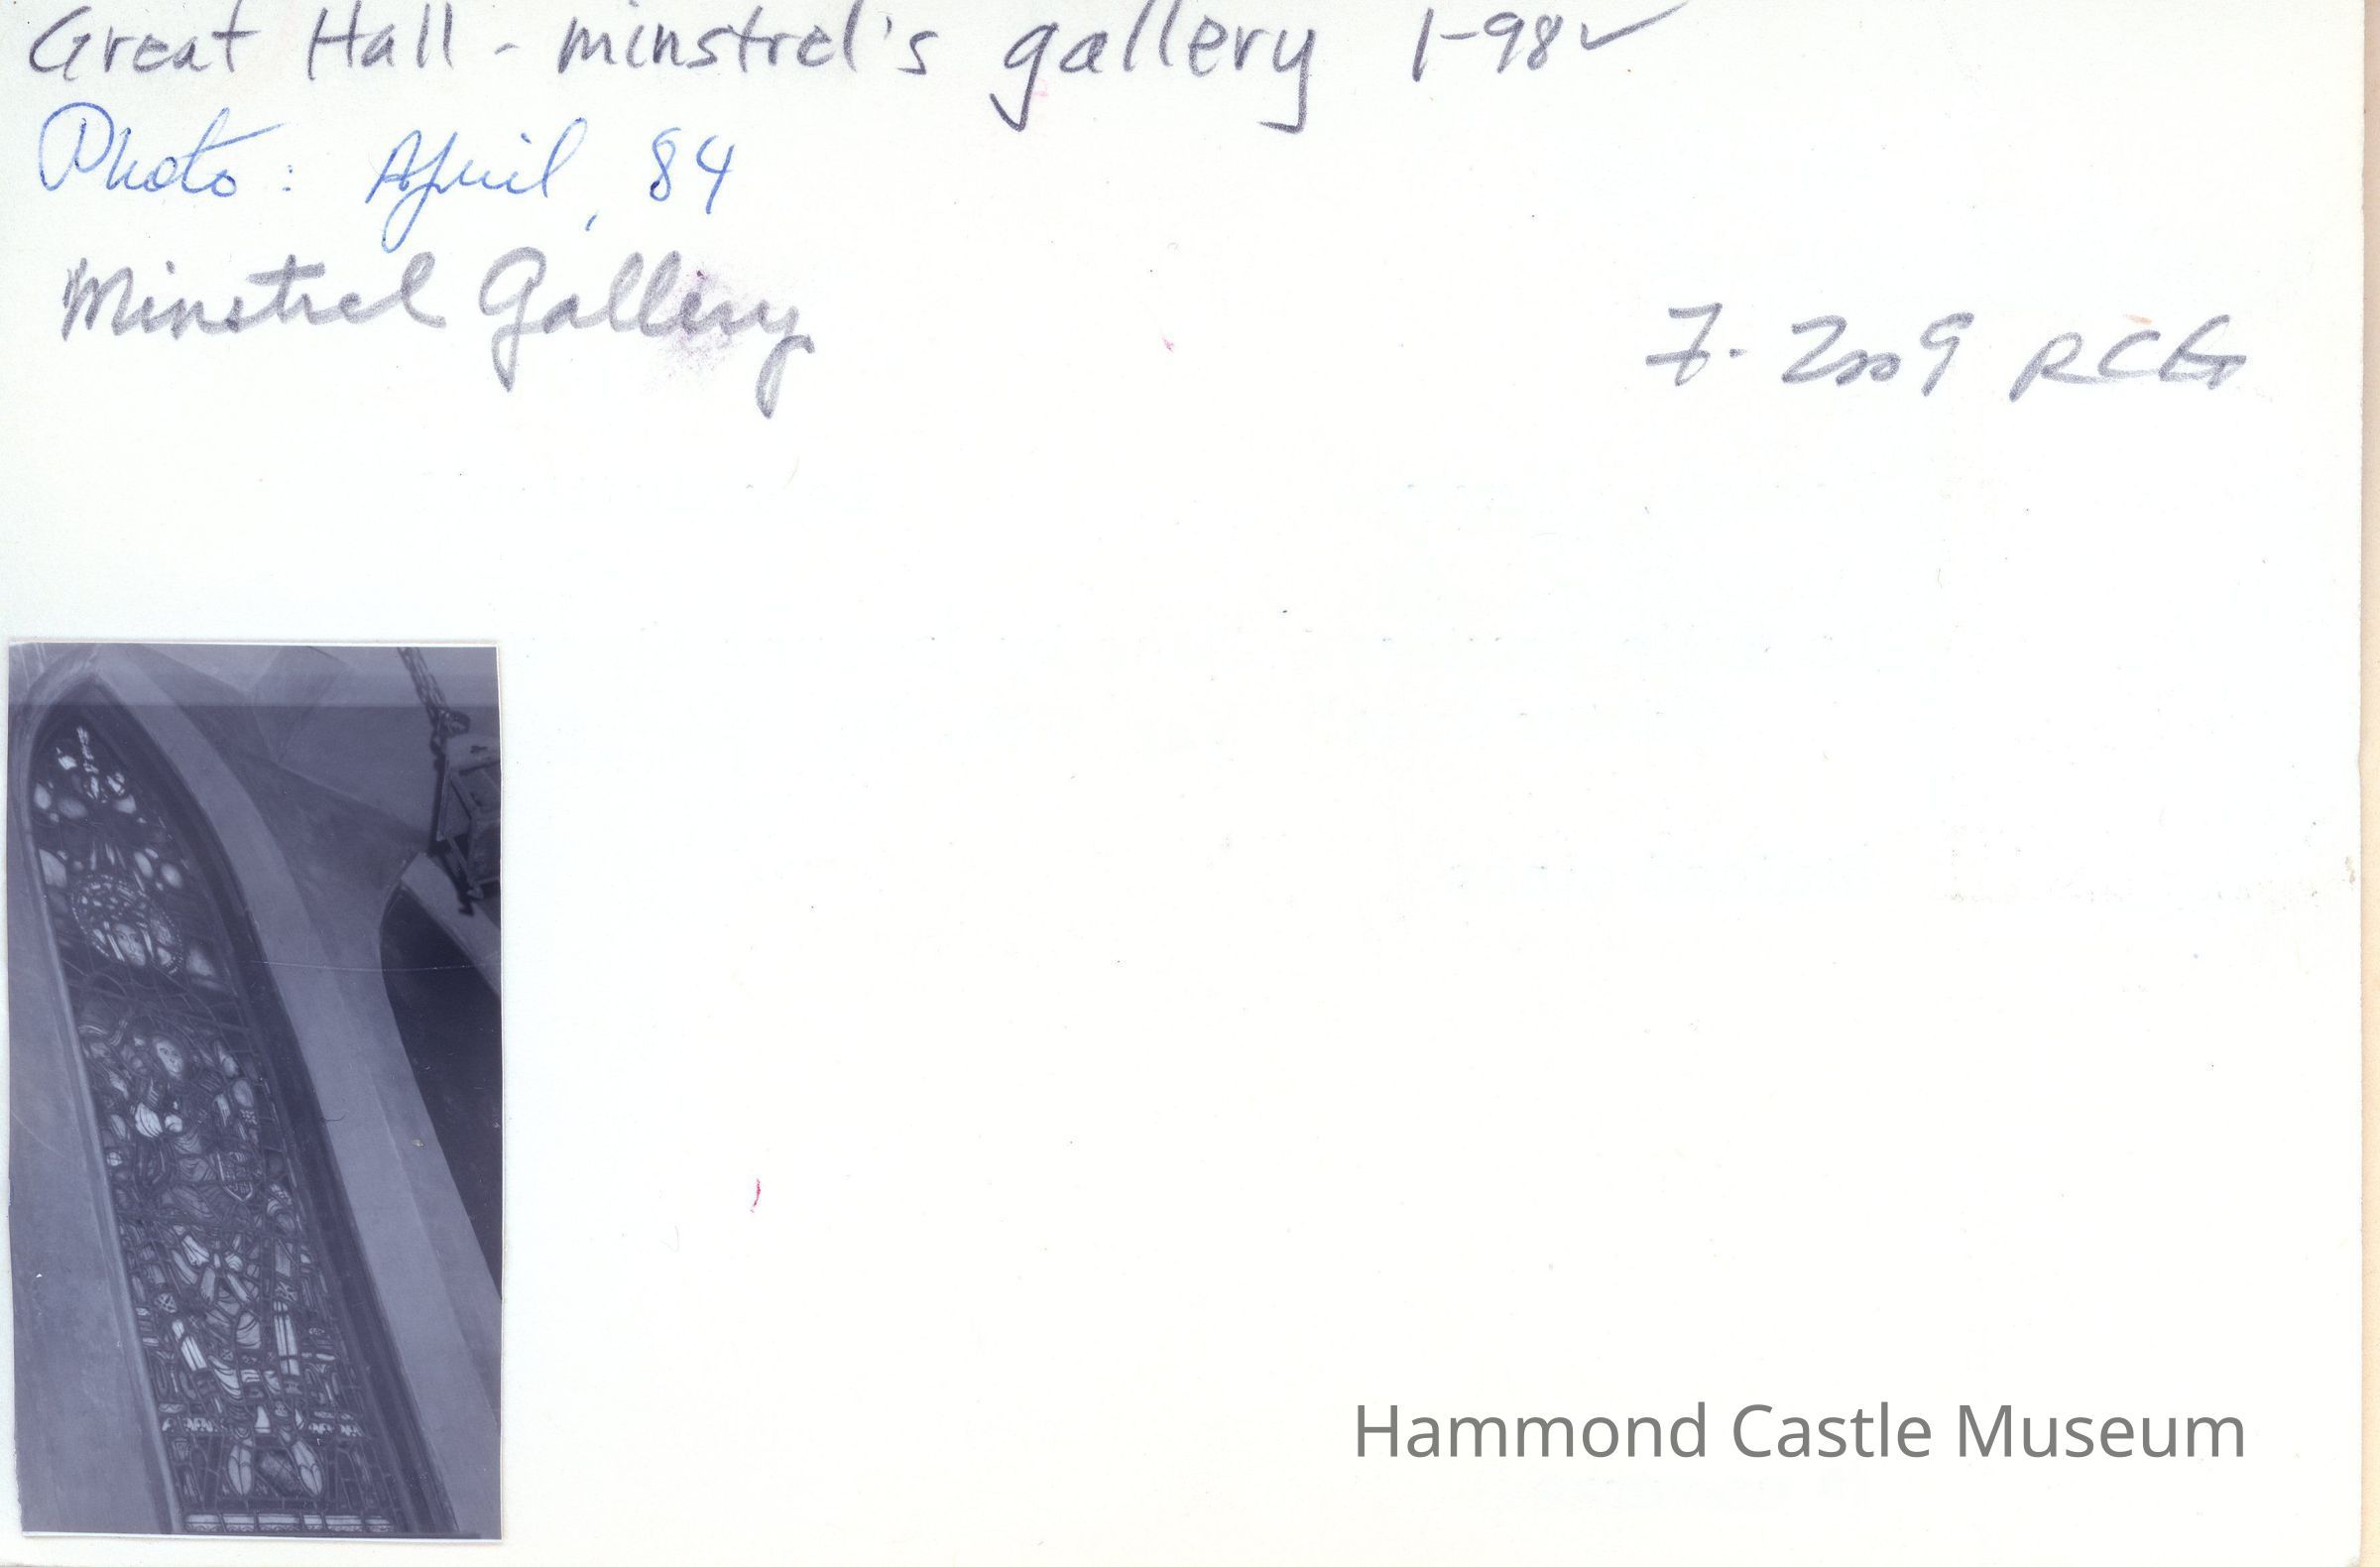 Great Hall - minstrel's gallery 1-98✓
Photo: April, 84
Minstrel Gallery
7-2009 RCG
Hammond Castle Museum